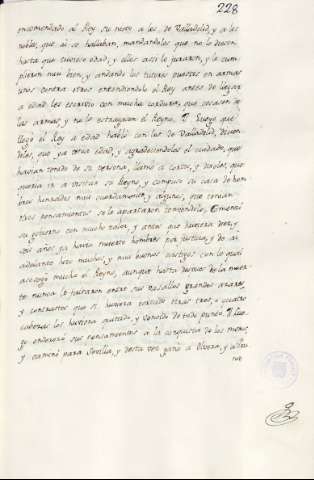 228
encomendado al Rey su nieto a los de Valladolid, y a los
nobles, que ai se hallaban, mandandoles que no lo diesen
hasta que tuviese edad, y ellos assi lo juraron, y lo cum-
plieron mui bien, y andando los tutores puestos en armas
unos contra otros entendiendolo el Rey antes de llegar
a edad les escrivio con mucha cordura, que cesasen de
las armas, y no le estragasen el Reyno. Y luego que
llegó el Rey a edad habló con los de Valladolid, dicien-
doles, que ya tenia edad, y agradeciendoles el cuidado, que
havian tenido de su persona, llamó a cortes, y dixoles, que
queria ir a visitar su Reyno, y compuso su casa de hom-
bres honrrados mui cuerdamente, y algunos, que tenian
otros pensamientos se le apartaron temiendole, Comenzó
su govierno con mucho valor, y antes que huviera diez, y
seis años ya havia muerto hombres por justicia, y de ai
adelante hizo muchos, y mui buenos castigos con lo qual
asosegó mucho el Reyno, aunque hasta despues de la muer-
te nunca le faltaron entre sus Vasallos grandes azares,
y contrastes que si huviera cortado otras tres, o quatro
cabezas los huviera quitado, y venido de todo punto. Y lue-
go enderezó sus pensamientos a la conquista de los moros,
y caminó para Sevilla, y desta vez ganó a Olvera, y a